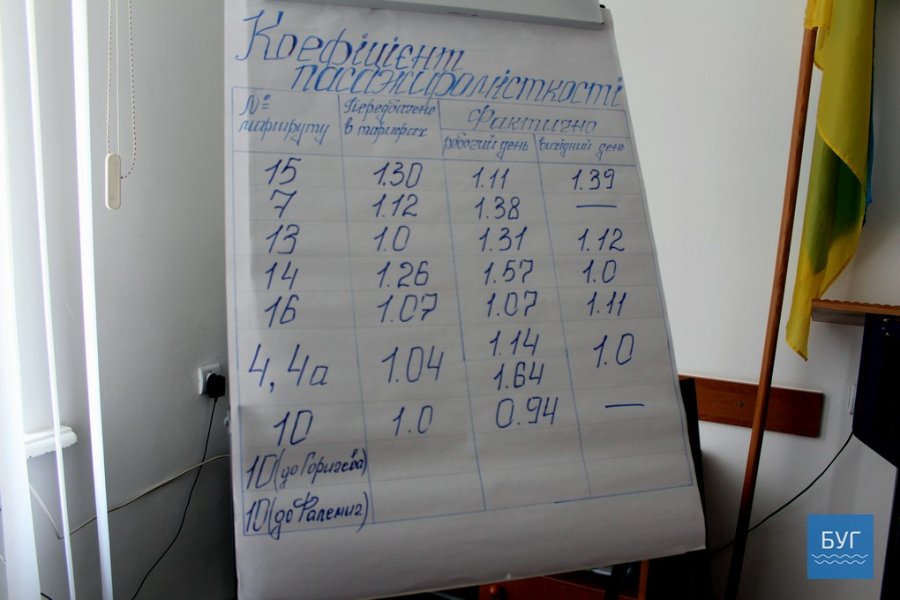 Коефіцієнт
пасажиромісткості
№ маршруту | Передбачено в тарифах | Фактично
робочий день | вихідний день
15 | 1.30 | 1.11 | 1.39
7 | 1.12 | 1.38 | —
13 | 1.0 | 1.31 | 1.12
14 | 1.26 | 1.57 | 1.0
16 | 1.07 | 1.07 | 1.11
4, 4а | 1.04 | 1.14 1.64 | 1.0
10 | 1.0 | 0.94 | —
10 (до Горичева)
10 (до Фалемиг)
БУГ